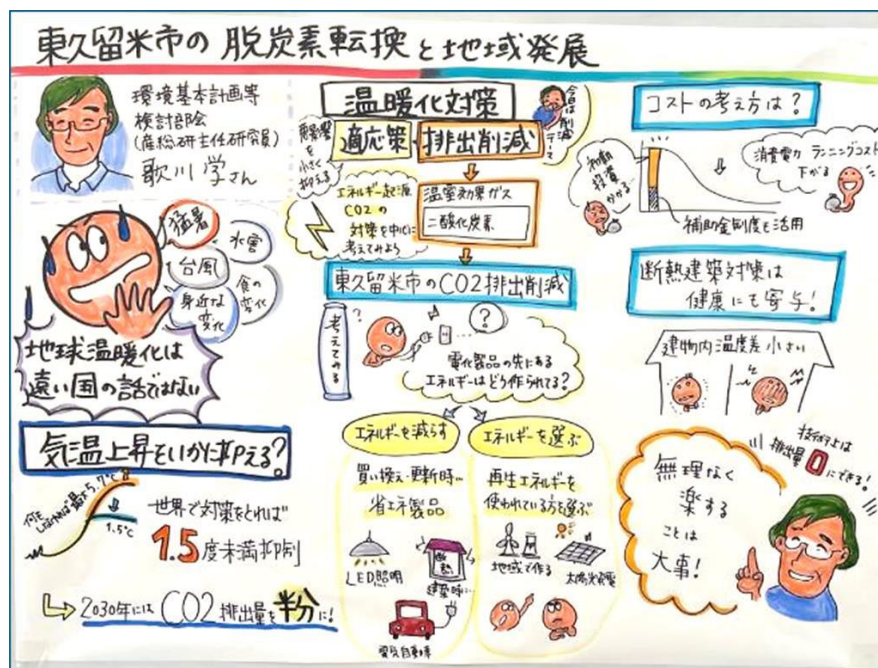 東久留米市の 脱炭素転換と地域発展
環境基本計画等
検討部会
(産総研主任研究員)
歌川 学さん
猛暑
水害
台風
食の
変化
身近な
変化
地球温暖化は
遠い国の話ではない
気温上昇をいかに抑える?
何も
しなければ最大5.7℃
1.5℃
世界で対策をとれば
1.5度未満抑制
2030年には CO2排出量を半分に!
温暖化対策
今日は削減
悪影響を
小さく
抑える
適応策
排出削減
エネルギー起源
CO2の
対策を中心に
考えてみよう
温室効果ガス
二酸化炭素
東久留米市のCO2排出削減
考えてみる
?
?
電化製品の先にある
エネルギーはどう作られてる?
エネルギーを減らす
エネルギーを選ぶ
買い換え・更新時…
省エネ製品
LED照明
断熱
建築時に
電気自動車
再生エネルギーを
使われている方を選ぶ
地域で作る
太陽光発電
コストの考え方は?
初期
投資
かかる…
消費電力 ランニングコスト
下がる
補助金制度も活用
断熱建築対策は
健康にも寄与!
建物内温度差小さい
技術的には
排出量0にできる!
無理なく
楽する
ことは
大事!